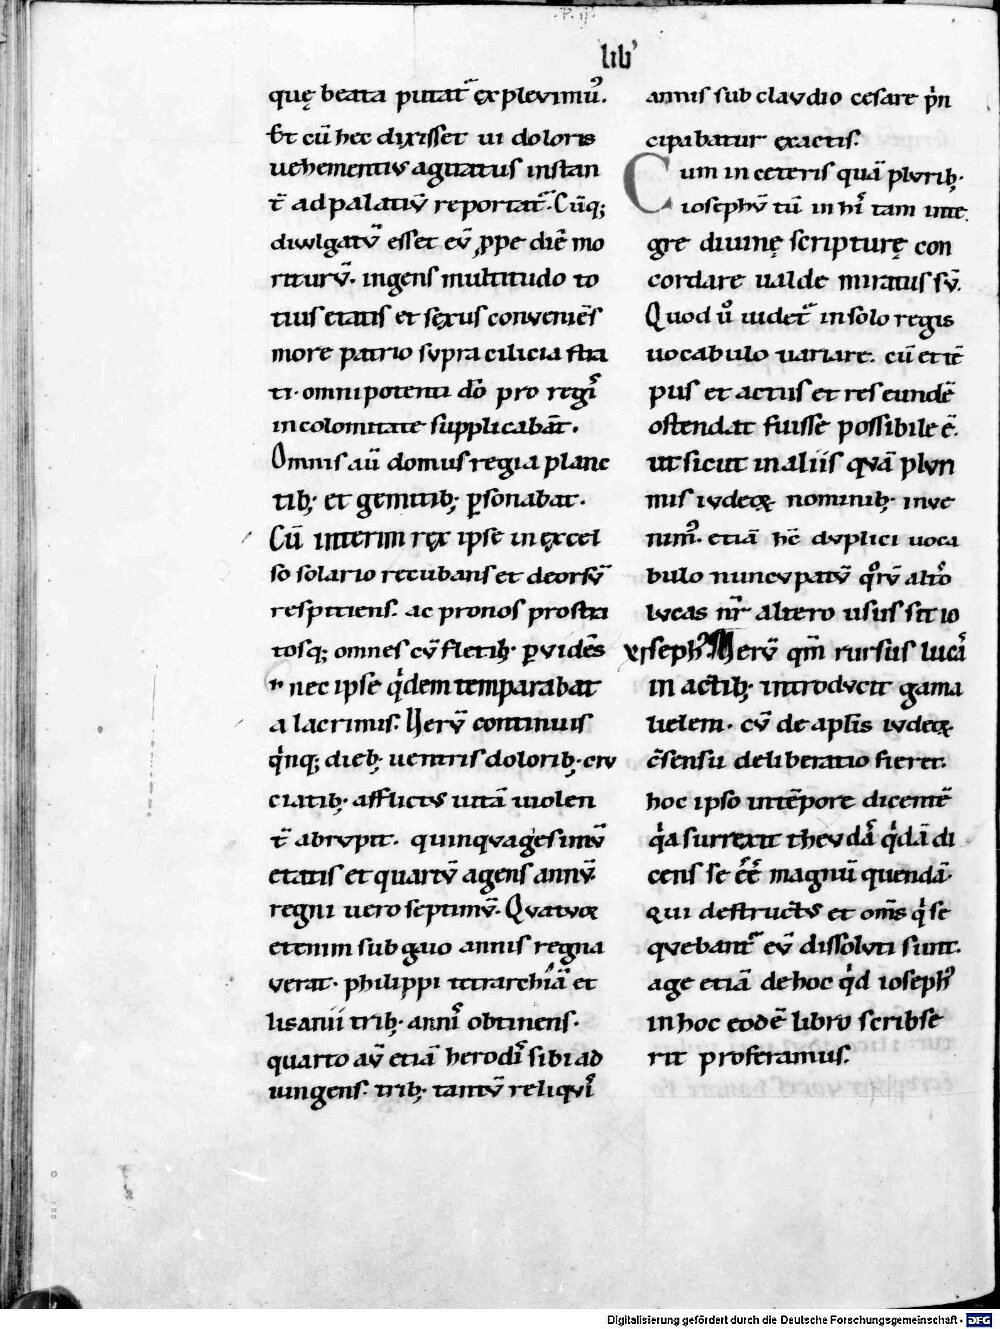 lib'
quę beata putat᷑ ęxplevimuˀ.
Et cū hec dixisset ui doloris
uehementiuſ agitatus instan
t̄ ad palatiū reportat᷑. Cūq;
diuulgatū esset eū ꝓpe diē mo
riturū. ingens multitudo to
tius etatis et sęxus conueniēs
more patrio supra cilicia stra
ti. omnipotenti dō pro regis
incolomitate supplicabāt.
Omnis aū domus regia planc
tib; et gemitib; ꝑsonabat.
Cū interim ręx ipse in ęxcel
so solario recubans et deorsū
respitiens. ac pronos prostra
tosq; omnes cū fletib; ꝑuidēs
nec ipse qͥdem temparabat
a lacrimis. Uerū continuis
qͥnq; dieb; uentris dolorib; cru
ciatib; afflictus uitā uiolen
t̄ abrupit. quinquagesimū
etatis et quartū agens annū.
regni uero septimū. Quatuor
etenim sub gaio annis regna
uerat. philippi tetrarchiā et
lisanii trib; annis obtinens.
quarto aū etiā herodis sibi ad
iungens. trib; tantū reliquis
annis sub claudio cesare pͥn
cipabatur exactis.
Cum in ceteris quā plurib;
iosephū tū in his tam inte
gre diuinę scripturę con
cordare ualde miratus sū.
Quod ū uidet᷑ in solo regis
uocabulo uariare. cū et tē
pus et actus et res eundē
ostendat fuisse possibile ē.
ut sicut in aliis quā pluri
mis iudeoꝝ nominib; inue
nimˀ. etiā hē duplici uoca
bulo nuncupatū qͦrū altͦo
lucas nr̄ altero usus sit io
sephˀ. Uerū qm̄ rursus lucas
in actib; introducit gama
lielem. cū de apl̄is iudeoꝝ
c̄sensu deliberatio fieret.
hoc ipso in tēpore dicentē
qͥa surrexit theudas qͥdā di
cens se ēē magnū quendā.
qui destructus et om̄s qͥ se
quebant᷑ eū dissoluti sunt.
age etiā de hoc qͥd iosephˀ
in hoc eodē libro scribse
rit proferamus.
Digitalisierung gefördert durch die Deutsche Forschungsgemeinschaft - DFG